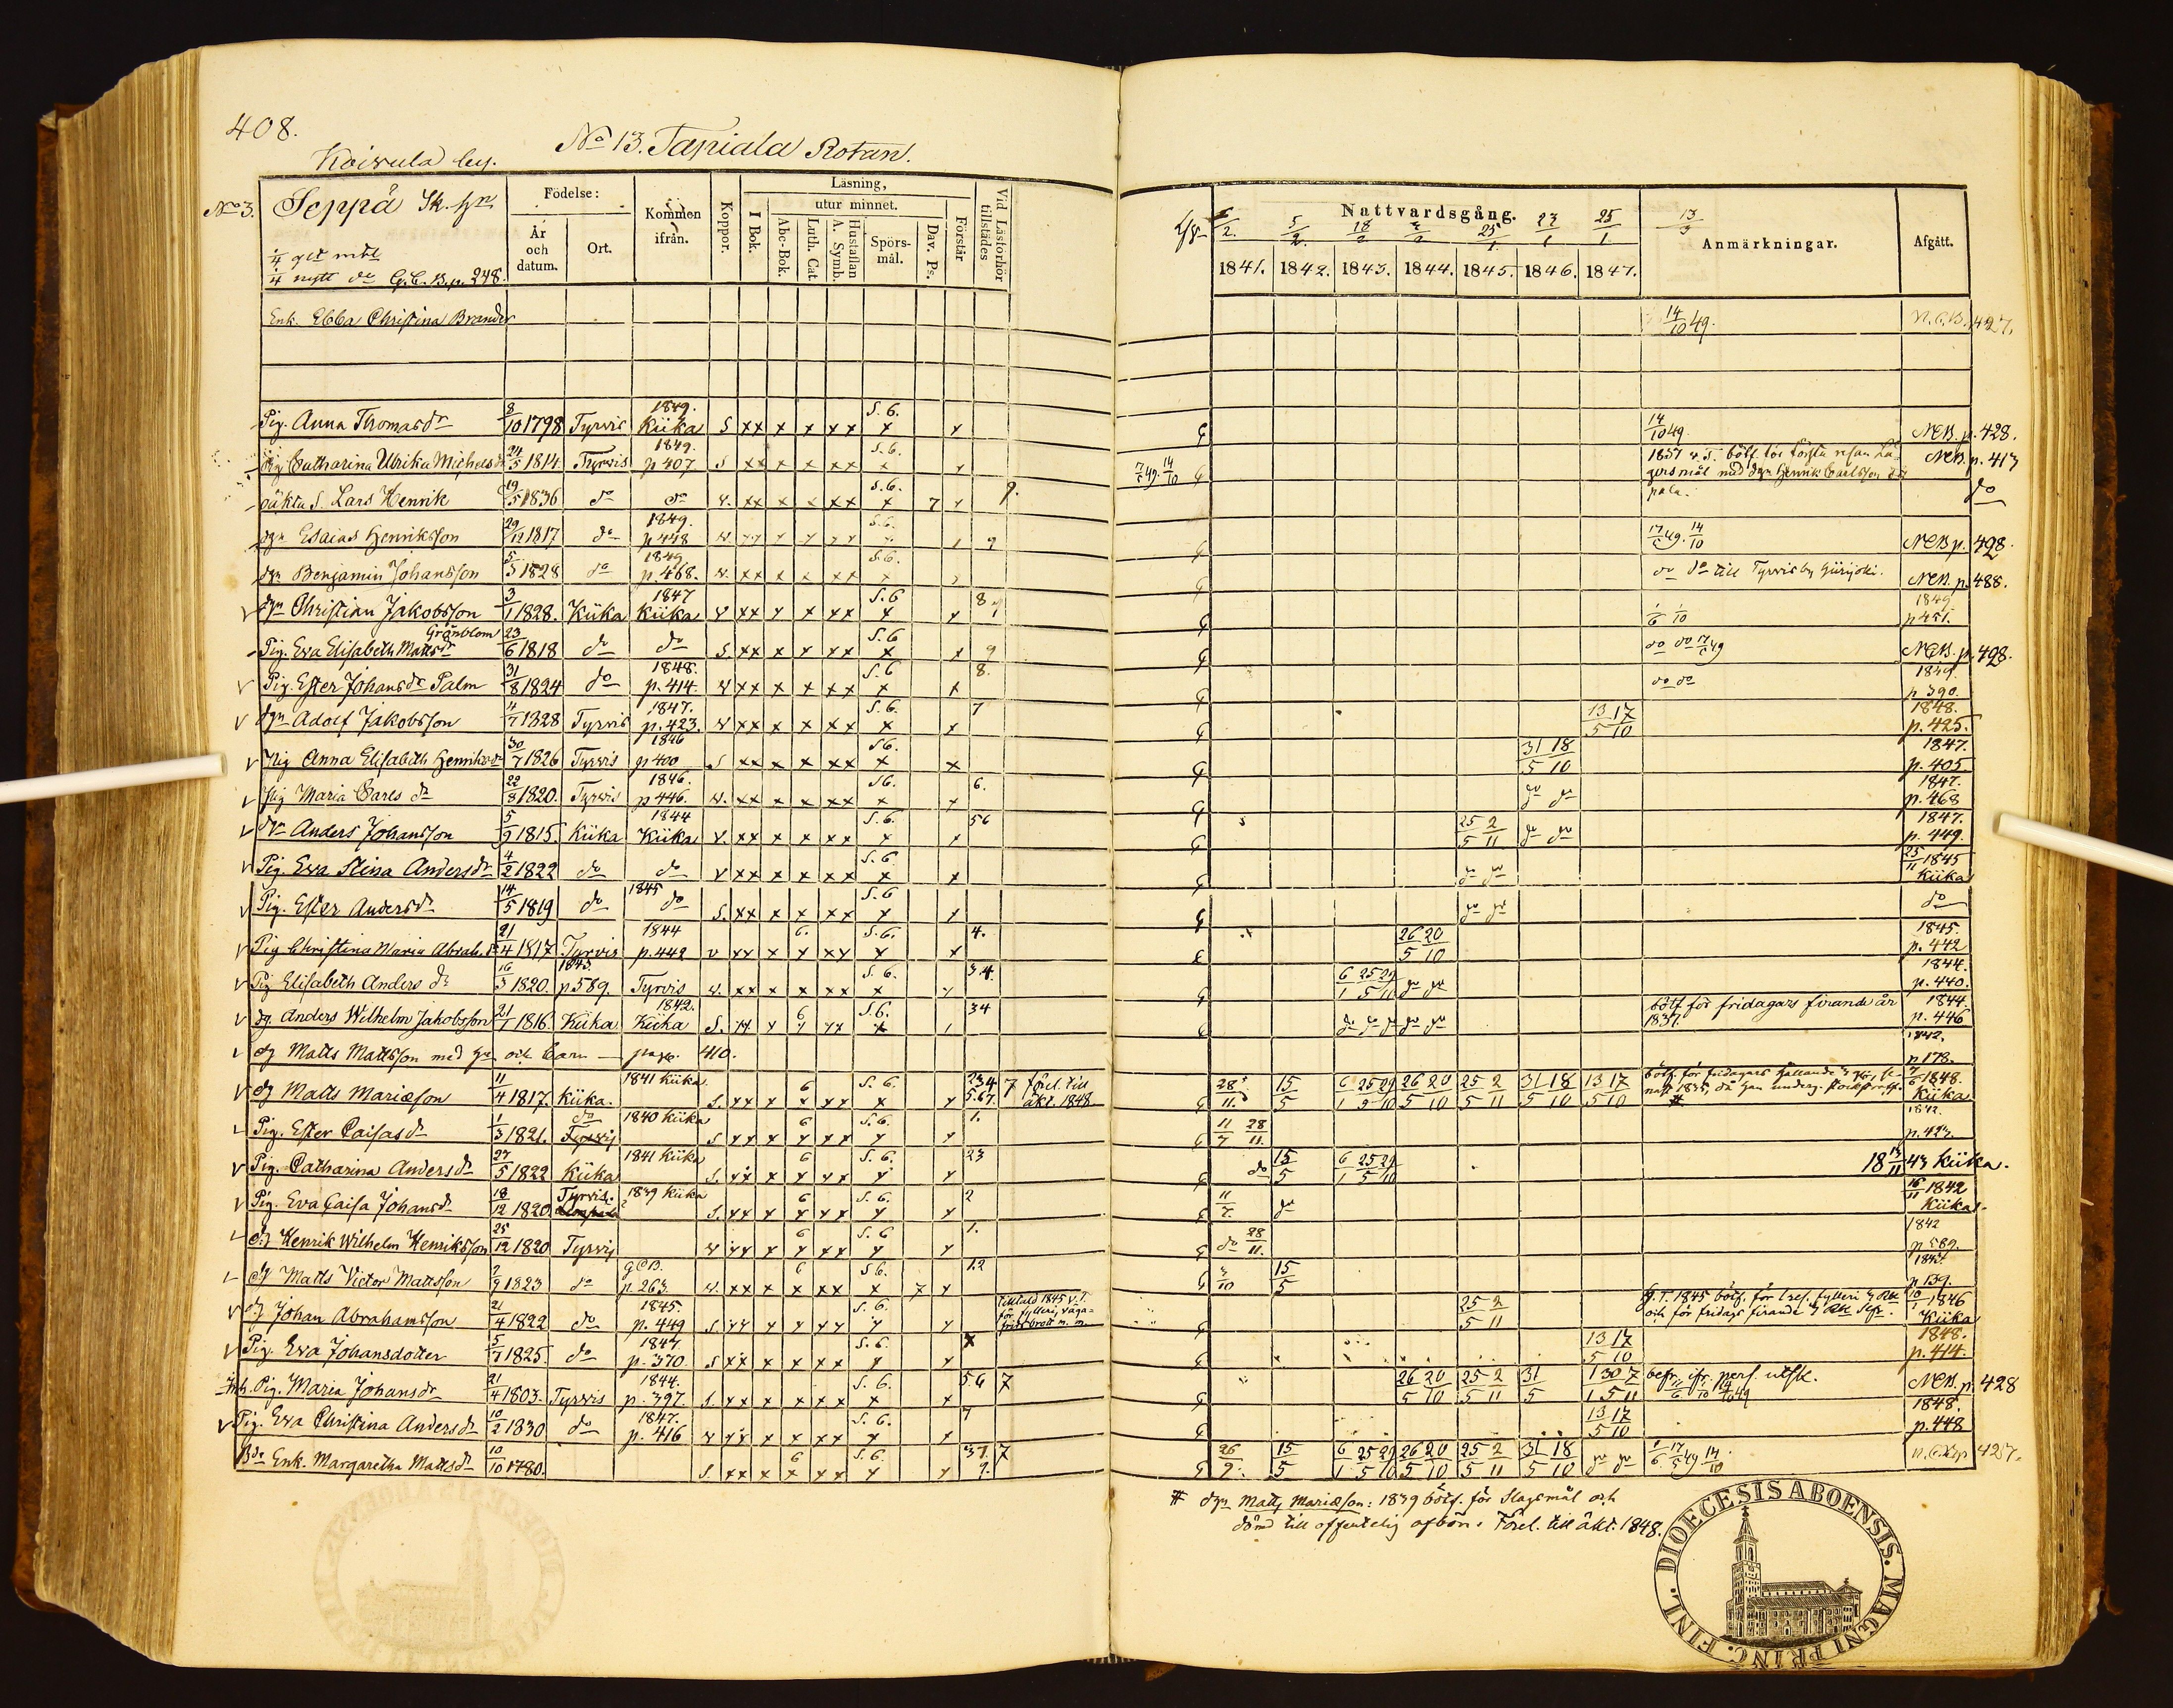 408.
Koivula by.
No 13. Tapiala Rotan.
No 3. Seppä Sk. hn
1/4 glt mtl
1/4 nytt do G.C.B. p. 248.
Födelse:
År och datum.
Ort.
Kommen ifrån.
Koppor.
Läsning,
I Bok.
utur minnet.
Abc-Bok.
Luth. Cat.
Hustaflan A. Symb.
Spörsmål.
Dav. Ps.
Förstår
Vid Läsförhör tillstädes
Nattvardsgång.
1841. 1842. 1843. 1844. 1845. 1846. 1847.
Anmärkningar.
Afgått.
Enk. Ebba Christina Brander 14/10 49. N.C.B. 427.
Pig. Anna Thomasdr 8/10 1798 Tyrvis 1849. Kiika S xx x x xx S.6. x x 14/10 49. NCB. p. 428.
Pig Catharina Ulrika Michelsdr 24/5 1814 Tyrvis 1849. p 407 S xx x x xx S.6. x x NCB. p. 413
oäkta S. Lars Henrik 19/5 1836 do do v. xx x x xx S.6. x 7 x 9. do
dgn Esaias Henriksson 29/12 1817 do 1849. p 448 S.6. 9 17/5 49. 14/10 NCB p. 498.
dgn Benjamin Johansson 5/5 1828 do 1849 p. 468. v. xx x x xx S.6. x do do till Tyrvis by NCB. p. 488.
dgn Christian Jakobsson 3/1 1828. Kiika 1847 Kiika v xx x x xx S.6 x x 8 1849 p 451.
Grönblom
Pig. Eva Elisabeth Mattsdr 23/6 1818 do do S. xx x x xx S.6 x x 9 do do 17/5 49 NCB. p. 498.
Pig. Ester Johansdr Palm 31/8 1824 do 1848. p. 414. v xx x x xx S.6 x x 8. do do 1849. p 390.
dgn Adolf Jakobsson 4/7 1828 Tyrvis 1847. p. 423. v xx x x xx S.6. x x 7 13 17/5 10 1848. p. 425.
Pig Anna Elisabeth Henriksdr 30/7 1826 Tyrvis 1846 p 400 S xx x x xx S6. x x 31 18/5 10 1847. p. 405.
Pig Maria Carlsdr 22/8 1820. Tyrvis 1846. p 446. v. xx x x xx S6. x x 6. do do 1847. p. 468
dgn Anders Johansson 5/9 1815. Kiika 1844 Kiika v. xx x x xx S.6. x x 56 25 2/5 11 do do 1847. p. 449.
Pig. Eva Stina Andersdr 4/2 1822 do do v xx x x xx S.6. x x do do 25/11 1845 Kiika
Pig. Ester Andersdr 14/5 1819 do 1845 do S. xx x x xx S.6 x x do do do
Pig Christina Maria Abrah. dr 21/4 1817 Tyrvis 1844 p. 442 v xx x 6. x xx S.6. x x 4. 26 20/5 10 1845. p. 442
Pig Elisabeth Andersdr 16/3 1820. 1843. p 589. Tyrvis v. xx x x xx S.6. x x 34. 6 25 29/1 5 10 do do 1844. p. 440.
dg Anders Wilhelm Jakobsson 21/7 1816. Kiika 1842. Kiika S. xx x 6 x xx S.6. x 34 do do do do do bötf för fridagars firande år 1837. 1844. p. 446
dg Matts Mattsson med h. och barn — pag. 410. 1842. p 178.
dg Matts Mariæson 11/4 1817. Kiika. 1841 Kiika S. xx x 6 x xx S.6. x x 234 5.67. 7 förel. till äkt. 1848 28/11. 15/5 6 25 29/1 5 10 26 20/5 10 25 2/5 11 31 18/5 10 13 17/5 10 7/6 1848. Kiika
Pig. Ester Caisasdr 1/3 1821. do 1840 Kiika S xx x 6 x xx S.6. x x 1. 11/7 28/11. 1842. p. 427.
Pig. Catharina Andersdr 27/5 1822 Kiika 1841 Kiika S. xx x 6 x xx S.6. x x 23 do 15/5 6 25 29/1 5 10 18 13/11 43 Kiika.
Pig. Eva Caisa Johansdr 18/12 1820. Tyrvis. 1839 Kiika S. xx x 6 x xx S.6. x x 2 11/7. do 16/11 1842 Kiika.
dg Henrik Wilhelm Henriksson 25/12 1820 Tyrvis v xx x 6 x xx S.6 x x 1. do 28/11. 1842 p 589.
dg Matts Victor Mattsson 2/9 1823 do GCB. p. 263. v. xx x 6 x xx S6. x 7 x 12 3/10 15/5 p 139.
dg Johan Abrahamsson 21/4 1822 do 1845. p. 449 S. xx x x xx S.6. x x tilltald 1845 v.T. för fylleri, 25 2/5 11 10/1 1846 Kiika
Pig. Eva Johansdotter 5/7 1825. do 1847. p. 370. S xx x x xx S.6. x x 13 17/5 10 1848. p. 414.
Inh. Pig. Maria Johansdr 21/4 1803. Tyrvis 1844. p. 397. S. xx x x xx S.6. x x 56 7 26 20/5 10 25 2/5 11 31/5 1 30 7/1 5 11 NCB. p. 428
Pig. Eva Christina Andersdr 10/2 1830 do 1847. p. 416 v xx x x xx S.6. x x 7 13 17/5 10 1848. p. 448
Enk. Margaretha Mattsdr 10/10 1780. S. xx x 6 x xx S.6. x x 37. 9. 7 26/9. 15/5 6 25 29/1 5 10 26 20/5 10 25 2/5 11 31 18/5 10 do do N.C.B. p 427.
# dgn Matts Mariæson: 1839 bötf. för Slagsmål och
dömd till offentelig afbön. Förel. till äkt. 1848.
DIOECESIS ABOENSIS. MAGNI PRINC. FINL.